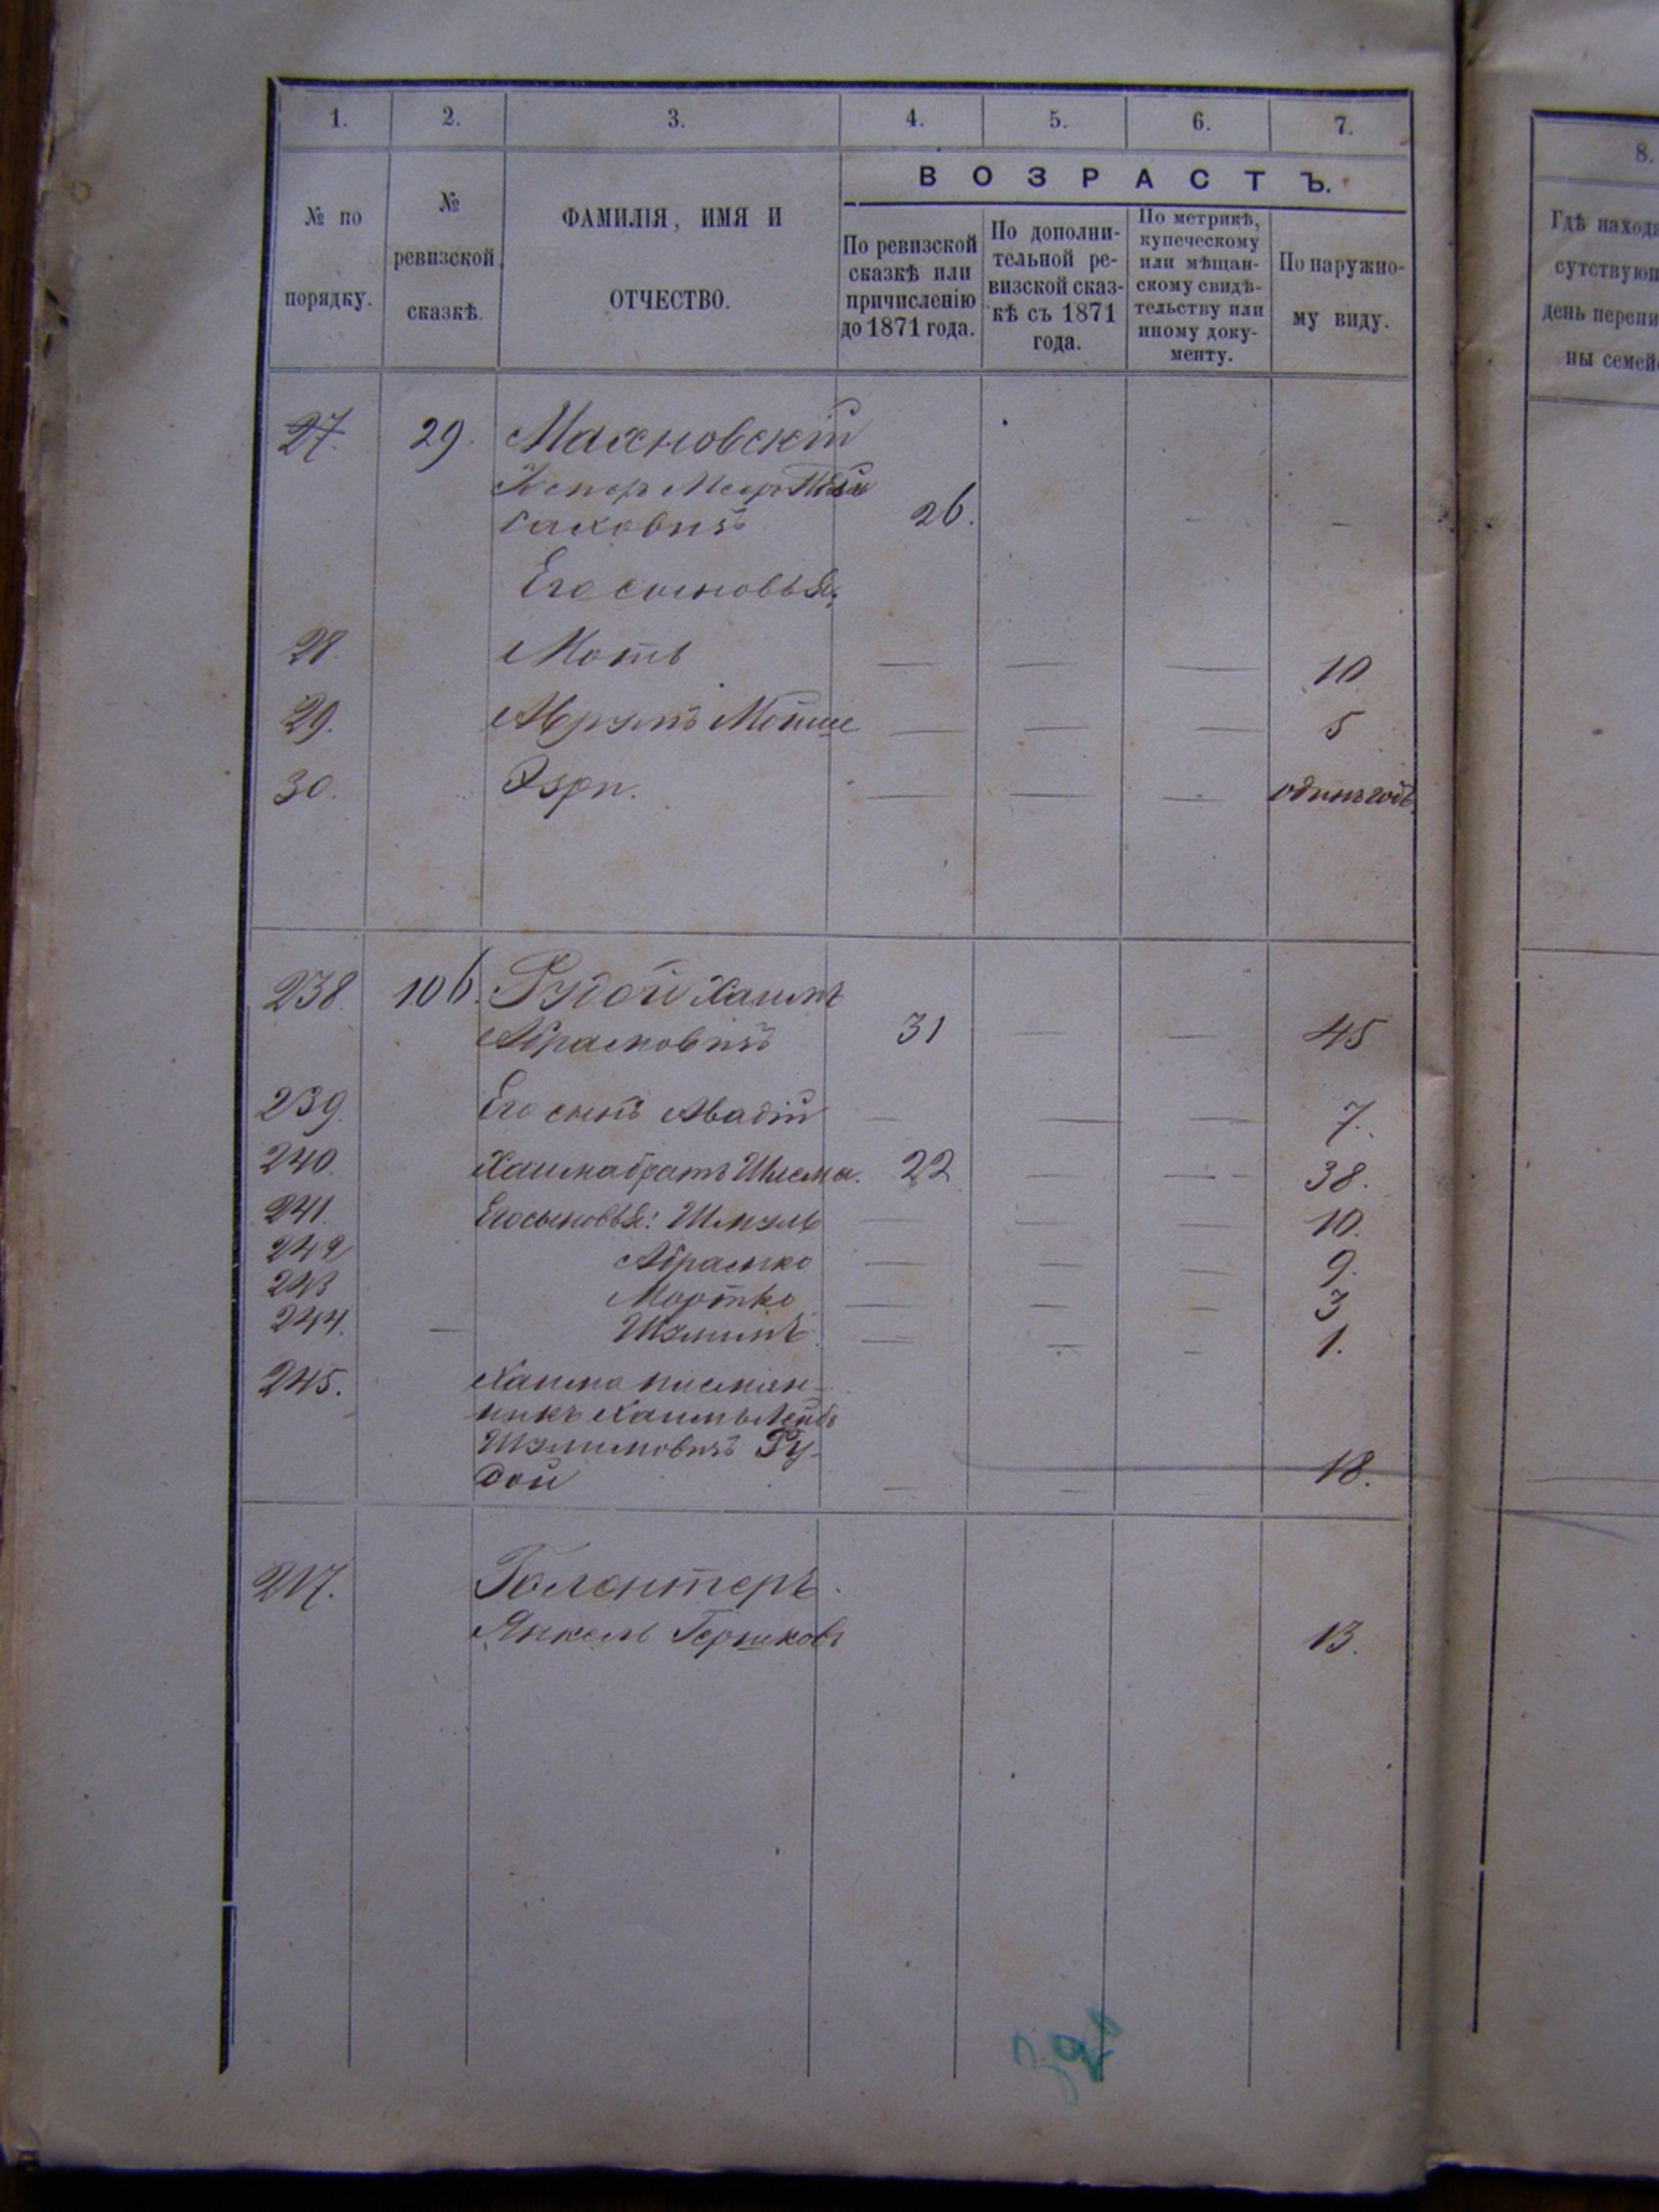 1. 2. 3. 4. 5. 6. 7.
ВОЗРАСТЪ.
№ по порядку.
№ ревизской сказкѣ.
ФАМИЛІЯ, ИМЯ И ОТЧЕСТВО.
По ревизской сказкѣ или причисленію до 1871 года.
По дополнительной ревизской сказкѣ съ 1871 года.
По метрикѣ, купеческому или мѣщанскому свидѣтельству или иному документу.
По наружному виду.
27. 29. Махновскій
26. — —
Его сыновья:
28. Моть — — — 10
29. Аврумъ Мойше — — — 5
30. Эзри. — — — одинъ годъ
238. 106. Рудой Хаимъ
Абрамовичъ 31 — — 45
239. Его сынъ Авадій — — — 7.
240. Хаима братъ Шлема. 22 — — 38.
241. Его сыновья: Шмуль — — — 10.
242 Абрамко — — — 9.
243 Мортко — — — 3
244. — Шулимъ — — — 1.
245. Хаима племян-
никъ Хаимъ Лейбъ
Шулимовичъ Ру-
дой — — — 18.
217. Галантеръ
Янкель Гершковъ 13.
8.
Гдѣ находя
сутствующ
день перепи
ны семей